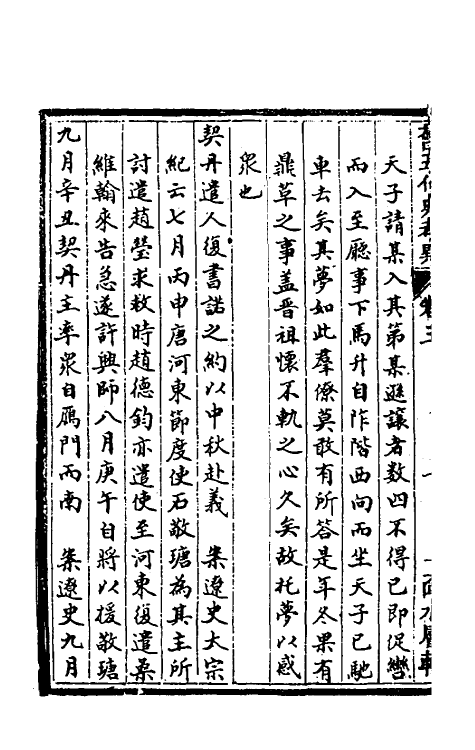 舊五代史考異 卷五
天子請某入其第某遜讓者數四不得已即促轡
而入至廳事下馬升自阼階西向而坐天子已馳
車去矣其夢如此羣僚莫敢有所答是年冬果有
鼎革之事蓋晉祖懷不軌之心久矣故托夢以惑
衆也
契丹遣人復書諾之約以中秋赴義　案遼史太宗
紀云七月丙申唐河東節度使石敬瑭為其主所
討遣趙瑩求救時趙德鈞亦遣使至河東復遣桑
維翰來告急遂許興師八月庚午自將以援敬瑭
九月辛丑契丹主率衆自鴈門而南　案遼史九月